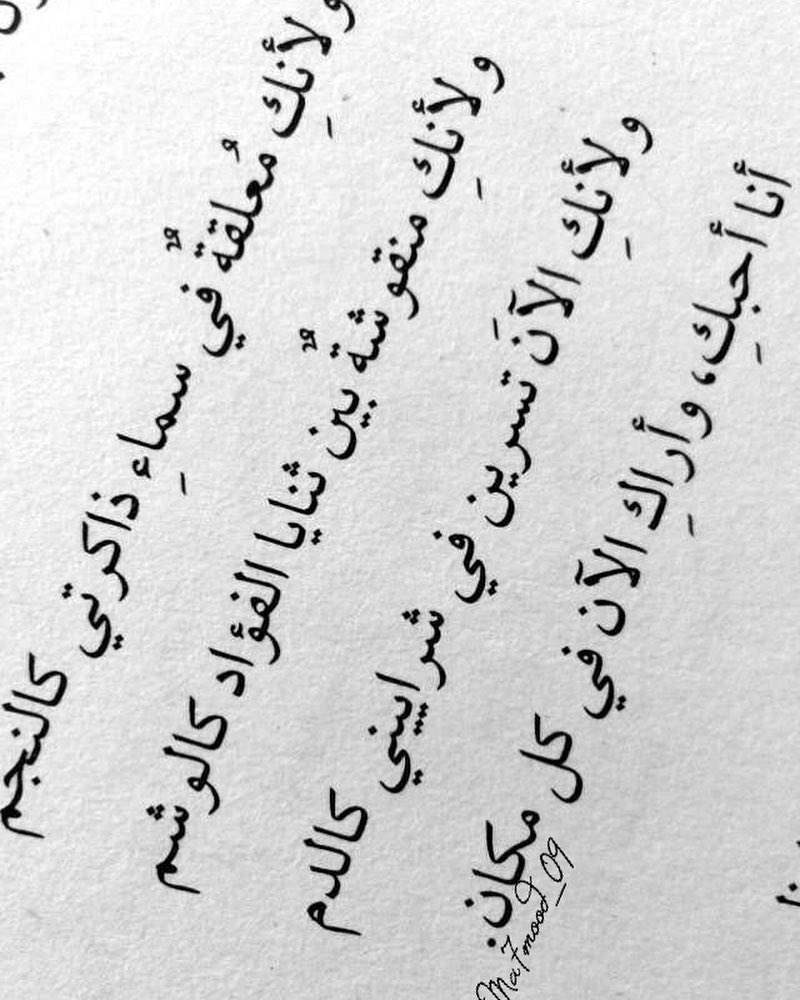 ولأنكِ مُعلقةٌ في سماءِ ذاكرتي كالنجم
ولأنكِ منقوشةٌ بين ثنايا الفؤاد كالوشم
ولأنكِ الآنَ تسرين في شراييني كالدم
أنا أحبكِ، وأراكِ الآن في كل مكان.
Ma7mood_09